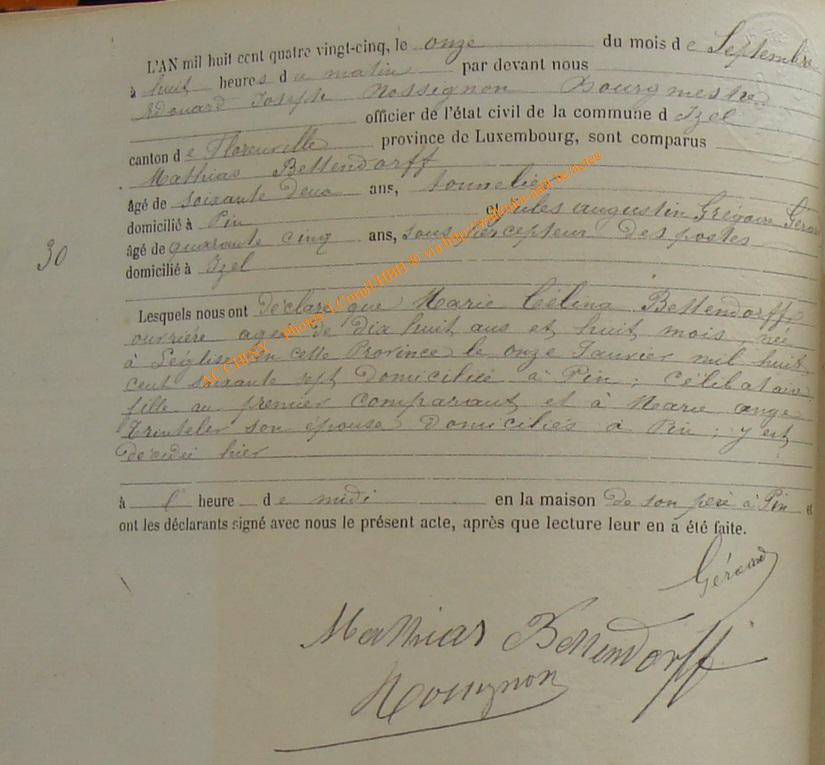 L'AN mil huit cent quatre vingt-cinq, le onze du mois de Septembre
à huit heures du matin par devant nous
Edouard Joseph Rossignon Bourgmestre
officier de l'état civil de la commune d Izel
canton de Florenville province de Luxembourg, sont comparus
Mathias Bettendorff
âgé de soixante deux ans, tonnelier
domicilié à Pin et Jules augustin Grégoire Gérard
âgé de quarante cinq ans, sous percepteur des postes
domicilié à Izel
30
Lesquels nous ont déclaré que Marie Célina Bettendorff
ouvrière agée de dix huit ans et huit mois, née
à Léglise en cette Province le onze Janvier mil huit
cent soixante sept domiciliée à Pin ; célibataire
fille au premier comparant et à Marie ange
Trinteler son épouse domiciliés à Pin ; y est
décédée hier
à l' heure de midi en la maison de son père à Pin et
ont les déclarants signé avec nous le présent acte, après que lecture leur en a été faite.
Gérard
Mathias Bettendorff
Rossignon
ACCHISNY - photos